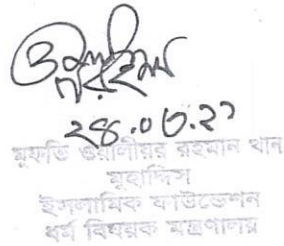 ২৪.০৩.২১
মুফতি ওয়ালীয়র রহমান খান
মুহাদ্দিস
ইসলামিক ফাউন্ডেশন
ধর্ম বিষয়ক মন্ত্রণালয়